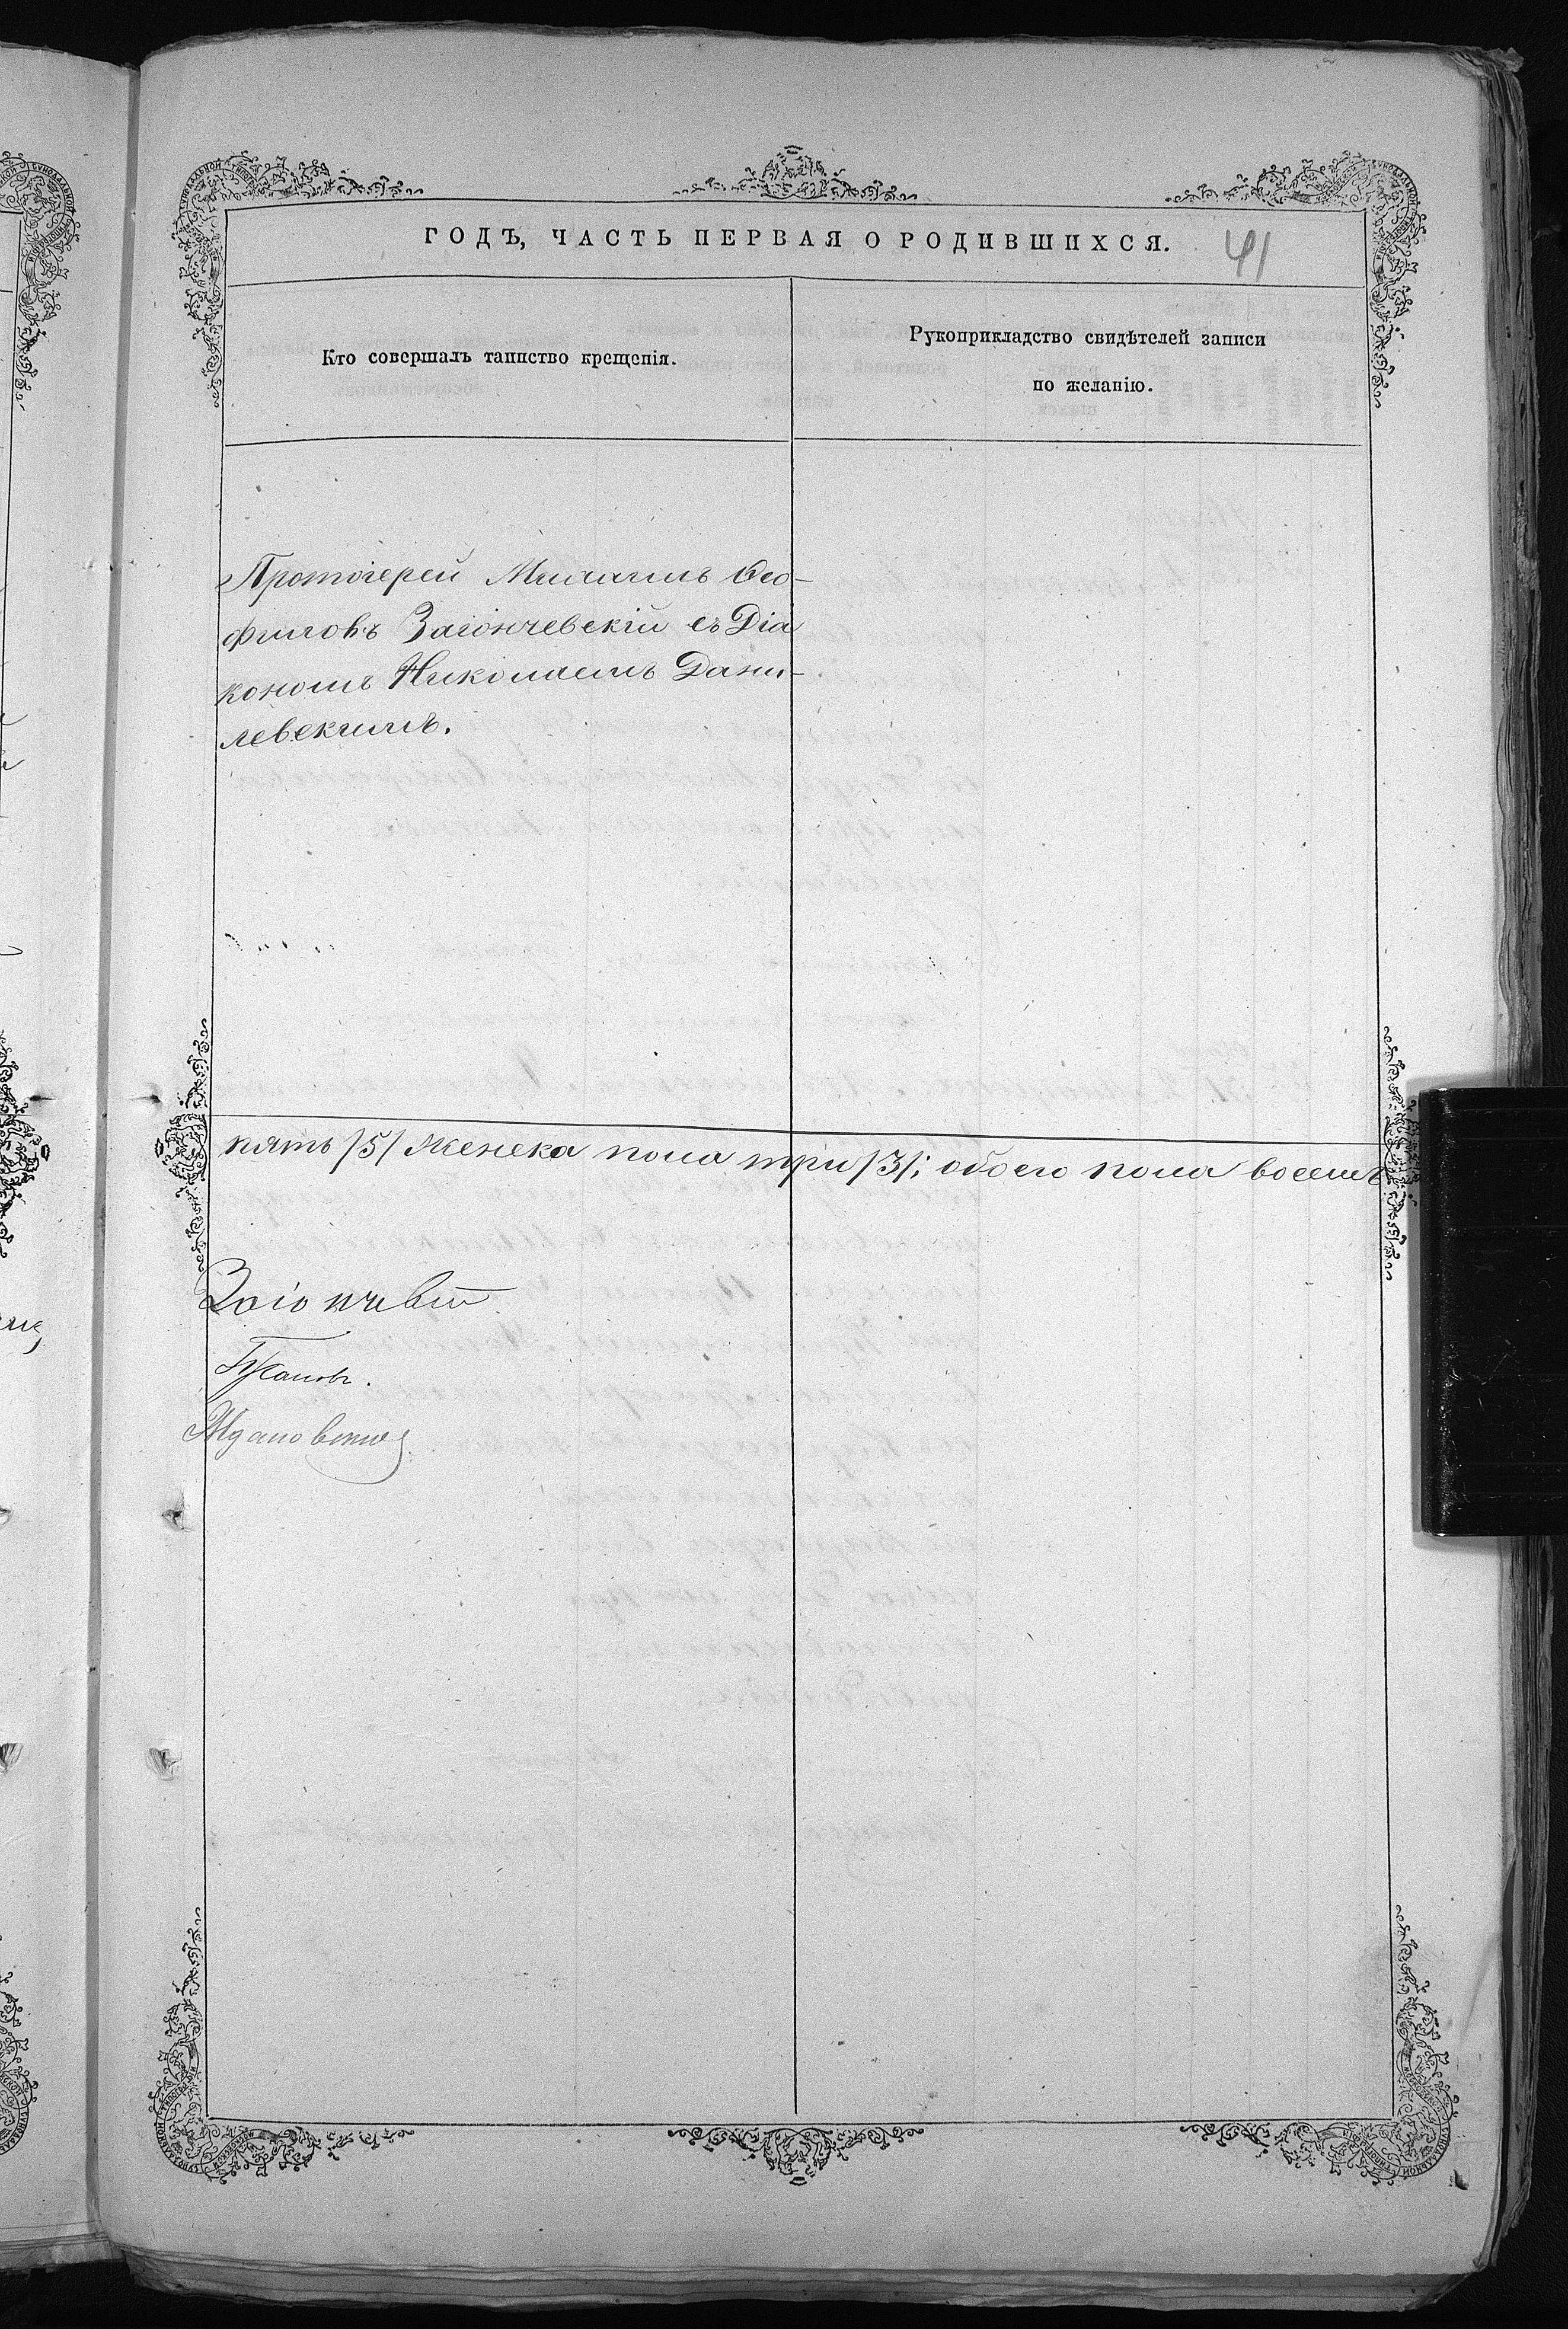 ГОДЪ, ЧАСТЬ ПЕРВАЯ О РОДИВШИХСЯ.
41
Кто совершалъ таинство крещенія.
Рукоприкладство свидѣтелей записи
по желанію.
Протоіерей Михаилъ Ѳео-
филовъ Загончевскій съ Діа
кономъ Николаемъ Дани-
левскимъ.
пять /5/ женска пола три /3/; обоего пола восемь